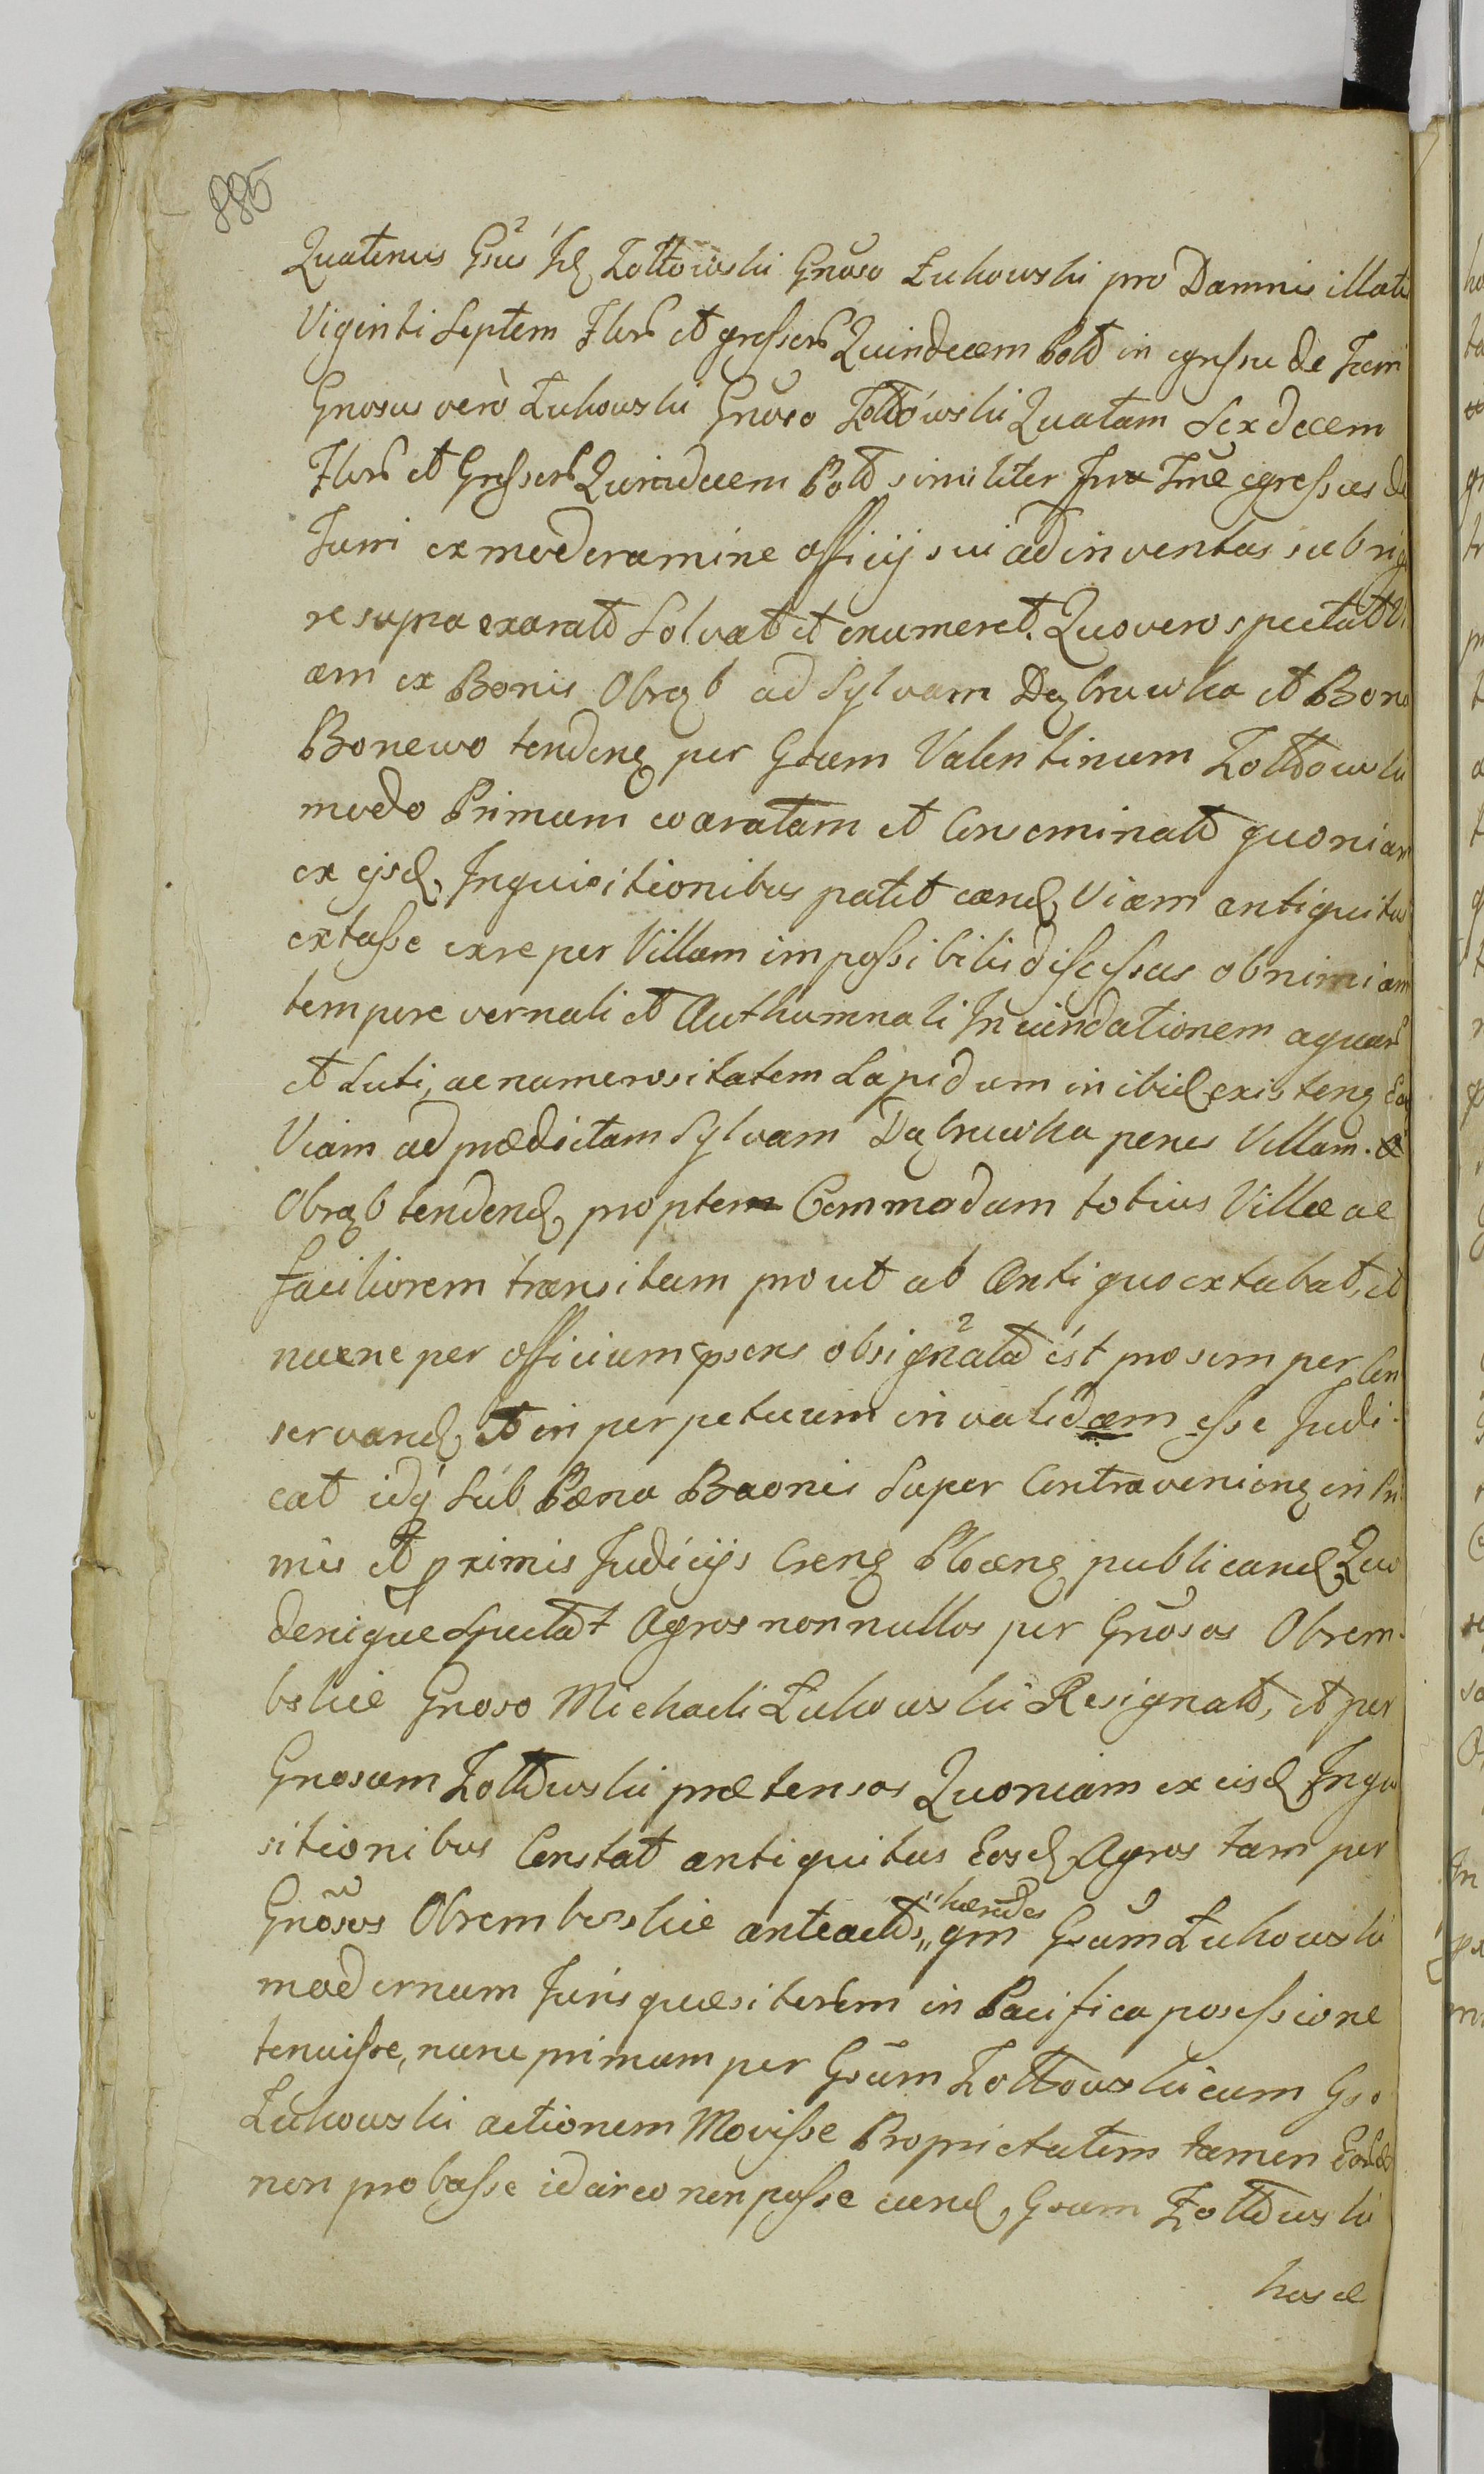 885
Quatenus Gsus Id Zołtowski Gnoso Łukowski pro Damnis illatis
Viginti Septem Flor et grosser Quindecem Pold in egressu de
Gnosus vero Łukowski Gnoso Zołtowski Quatam Sexdecem
Flor et Grosser Quindecem Pold similiter egressus de
Turri ex moderamine officij sui adinventas sub rigo
re supra exarato Solvat et enumeret. Quo vero spectat Vi
am ex Bonis Obręb ad Sylvam Dąbruwka et Bona
Bonewo tendeng per Gsum Valentinum Zołtowski
modo Primum coaratam et Conseminatt quoniam
ex ejsd Inquisitionibus patet eand Viam antiquitus
extasse ex re per Villam impossibilis discessus ob nimiam
tempore vernali et Authumnali Inundationem aquar
et Luti, ac numerositatem Lapidum in ibid existeng
Viam ad prædictam Sylvam Dąbruwka penes Villam
Obręb tendend, propter Commodum totius Villæ ac
faciliorem transitum prout ab Antiquo extabat, et
nunc per officium psens obsignata est pro semper Con
servand et in perpetuum invalidam esse Judi
cat idq sub Pæna Baonis super Contraveniong in Pri
mis et primis Judicijs Creng Ploceng publicand Quo
denique Spectat Agros nonnullos per Gnosos Obrem
bskie Gnoso Michaeli Łukowski Resignatt, et per
Gnosum Zołtowski prætensos Quoniam ex eisd Inqui
sitionibus Constat antiquitus Eosd Agros tam per
Gnosos Obrembskie anteactt hæredes qm Gsum Łukowski
modernum Juris quæsitorem in Pacifica possessione
tenuisse, nunc primum per Gsum Zołtowski cum Gso
Łukowski actionem Movisse Proprietatem tamen
non probasse idcirco non posse eund Gsum Zołtowski
hosce